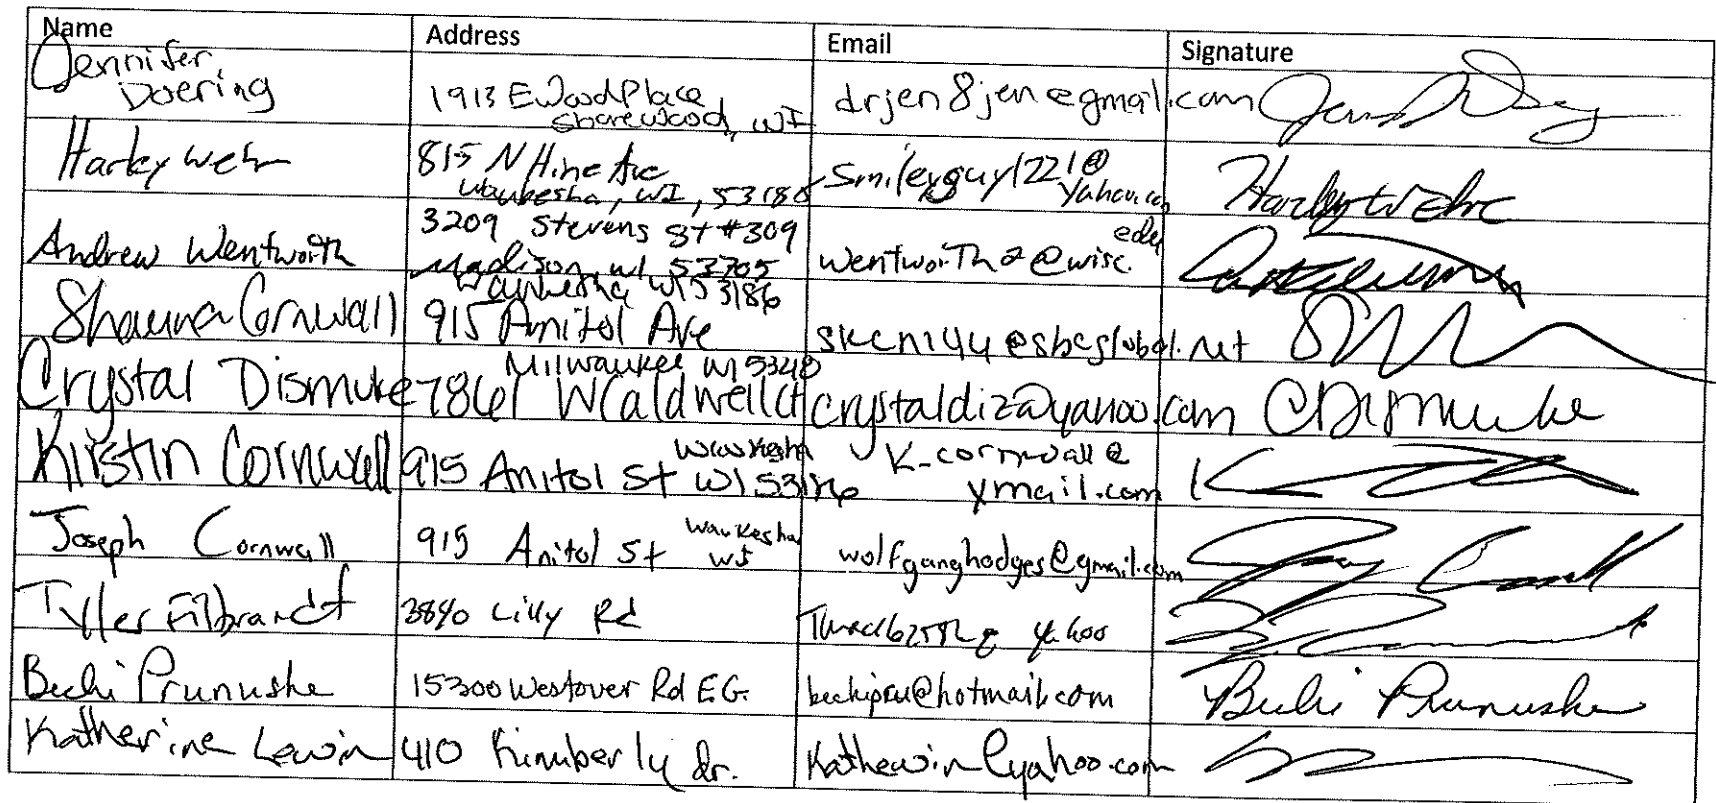 Name Address Email Signature
Jennifer
Doering
1913 E Wood Place
Shorewood, WI
drjen8jen@gmail.com
Harley Wehr
815 N Hine Ave
Waukesha, WI, 53188
Smileyguy1221@
yahoo.com
Harley Wehr
Andrew Wentworth
3209 Stevens St #309
Madison, WI 53705
wentworth2@wisc.
edu
Shauna Cornwall
Waukesha WI 53186
915 Anitol Ave
skcn144@sbcglobal.net
Crystal Dismuke
Milwaukee WI 53218
7861 W Caldwell Ct
crystaldiz@yahoo.com
CDismuke
Kirstin Cornwall
915 Anitol St
Waukesha
WI 53186
K_cornwall@
ymail.com
Joseph Cornwall
915 Anitol St
Waukesha
WI
wolfganghodges@gmail.com
Tyller Filbrandt
3840 Lilly Rd
yahoo
Becki Prunuske
15300 Westover Rd EG.
beckipru@hotmail.com
Becki Prunuske
Katherine Lewin
410 Kimberly dr.
Kathewin@yahoo.com